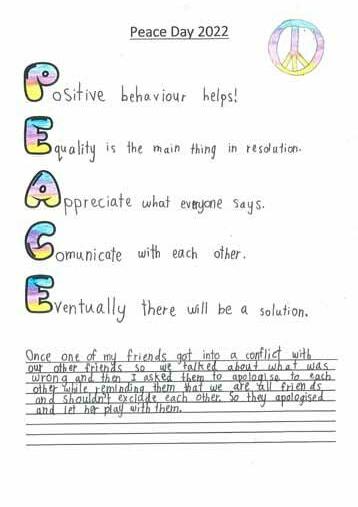 Peace Day 2022
Positive behaviour helps!
Equality is the main thing in resolution.
Appreciate what everyone says.
Comunicate with each other.
Eventually there will be a solution.
Once one of my friends got into a conflict with
our other friends so we talked about what was
wrong and then I asked them to apologise to each
other while reminding them that we are all friends
and shouldn't exclude each other. So they apologised
and let her play with them.